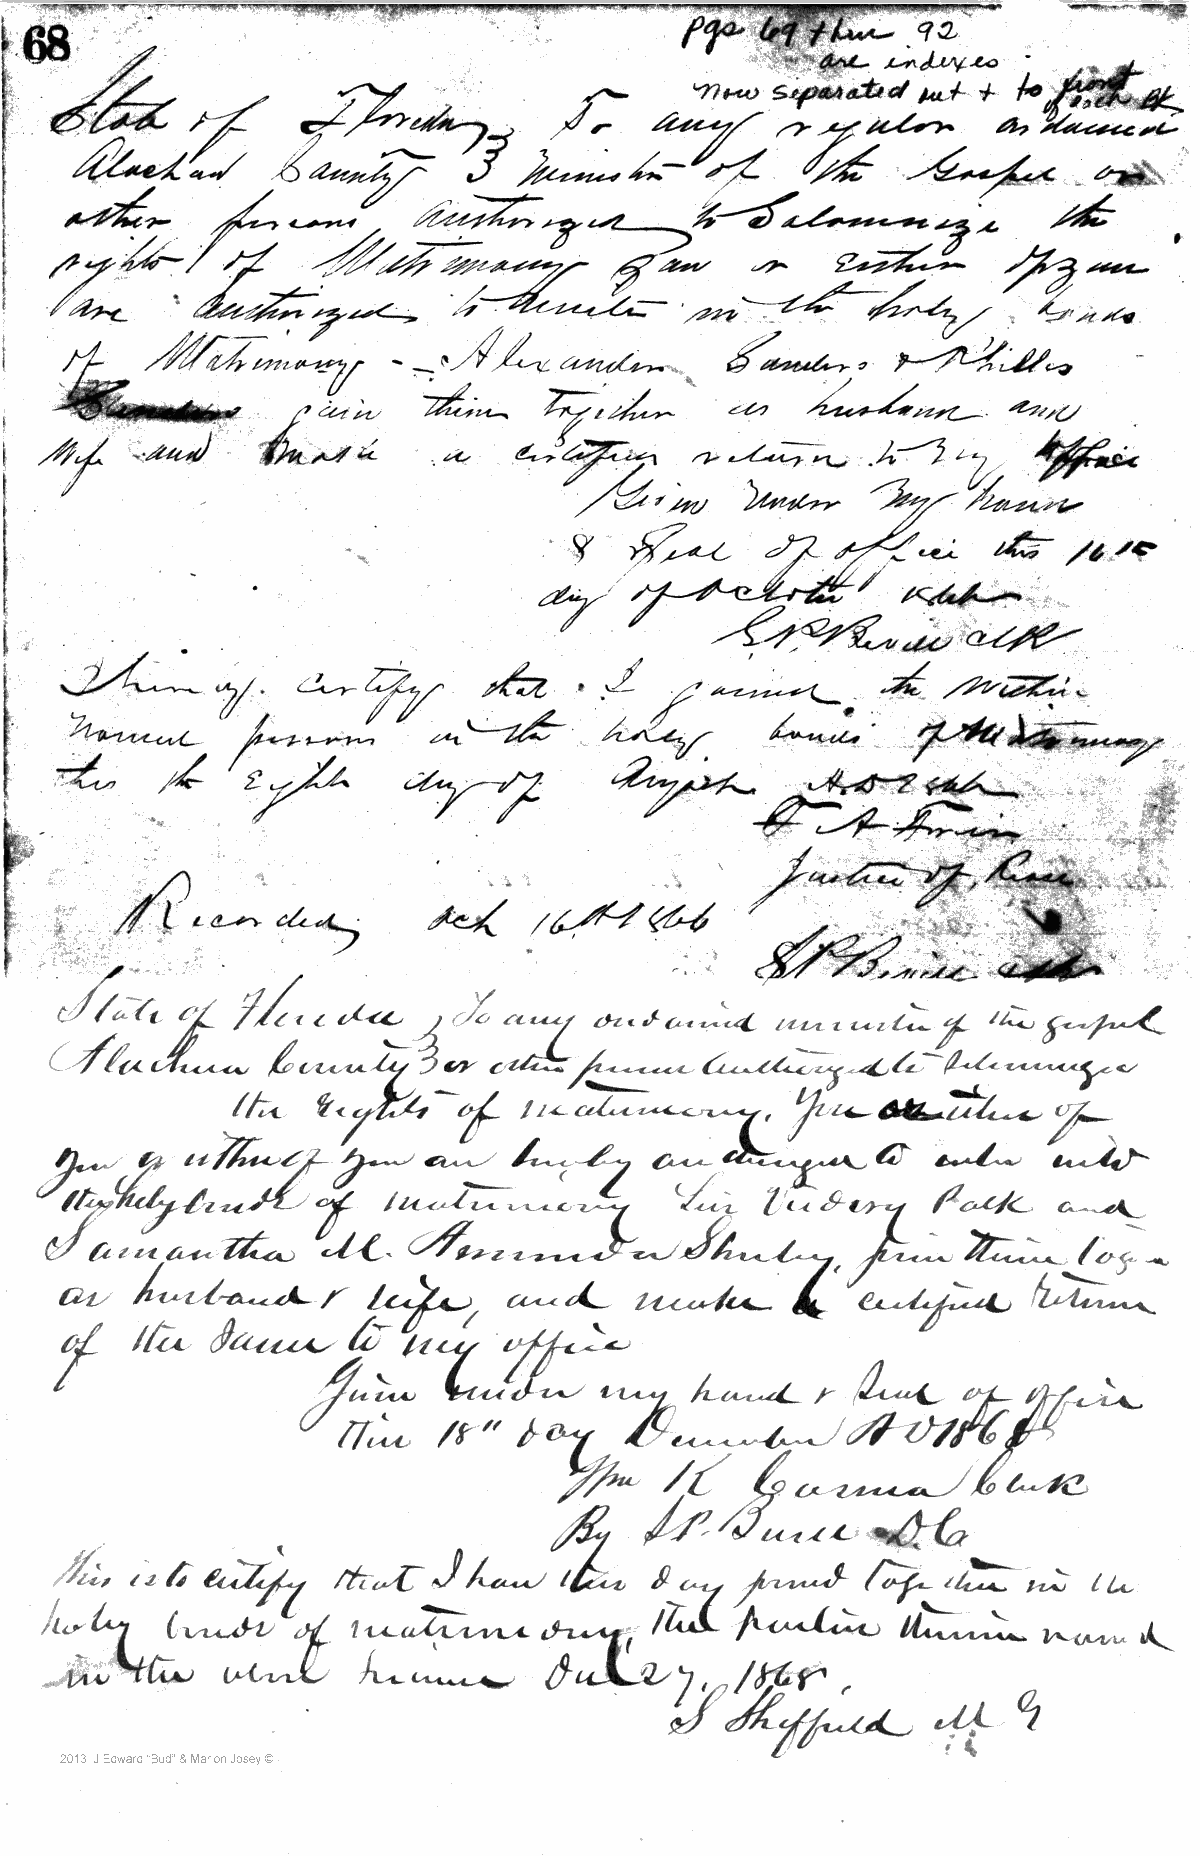 68
pgs 69 thru 92
are indexes
now separated out + to front
of each bk
State of Florida } To any regular ordained
Alachua County } Minister of the Gospel or
other persons authorized to Solomnize the
rights of Matrimony you or either of you
are authorized to unite in the holy bonds
of Matrimony - Alexander Sanders & Phillis
join them together as husband and
wife and make a certified return to my office
Given under my hand
& Seal of office this 16th
day of October 1866
S. P. Bevill Clk
I hereby certify that I joined the within
named persons in the holy bonds of Matrimony
this the Eighth day of August A.D. 1866
Justice of Peace
Recorded Oct 16th 1866
S P Bevill Clk
State of Florida } To any ordained minister of the gospel
Alachua County } or other person authorized to Solemnize
the Rights of matrimony. You or either of
you or either of you are hereby authorized to enter into
the holy bonds of matrimony Polk and
Samantha M. join them toge
as husband & wife, and make a certified return
of the same to my office
Given under my hand & Seal of office
this 18" day December AD 1868
Wm K Cessna Clerk
By S P. Bevill D.C.
This is to certify that I have this day joined together in the
holy bonds of matrimony, the parties therein named
in the above license Dec 27, 1868.
S Sheffield M G
2013 J Edward "Bud" & Marion Josey ©